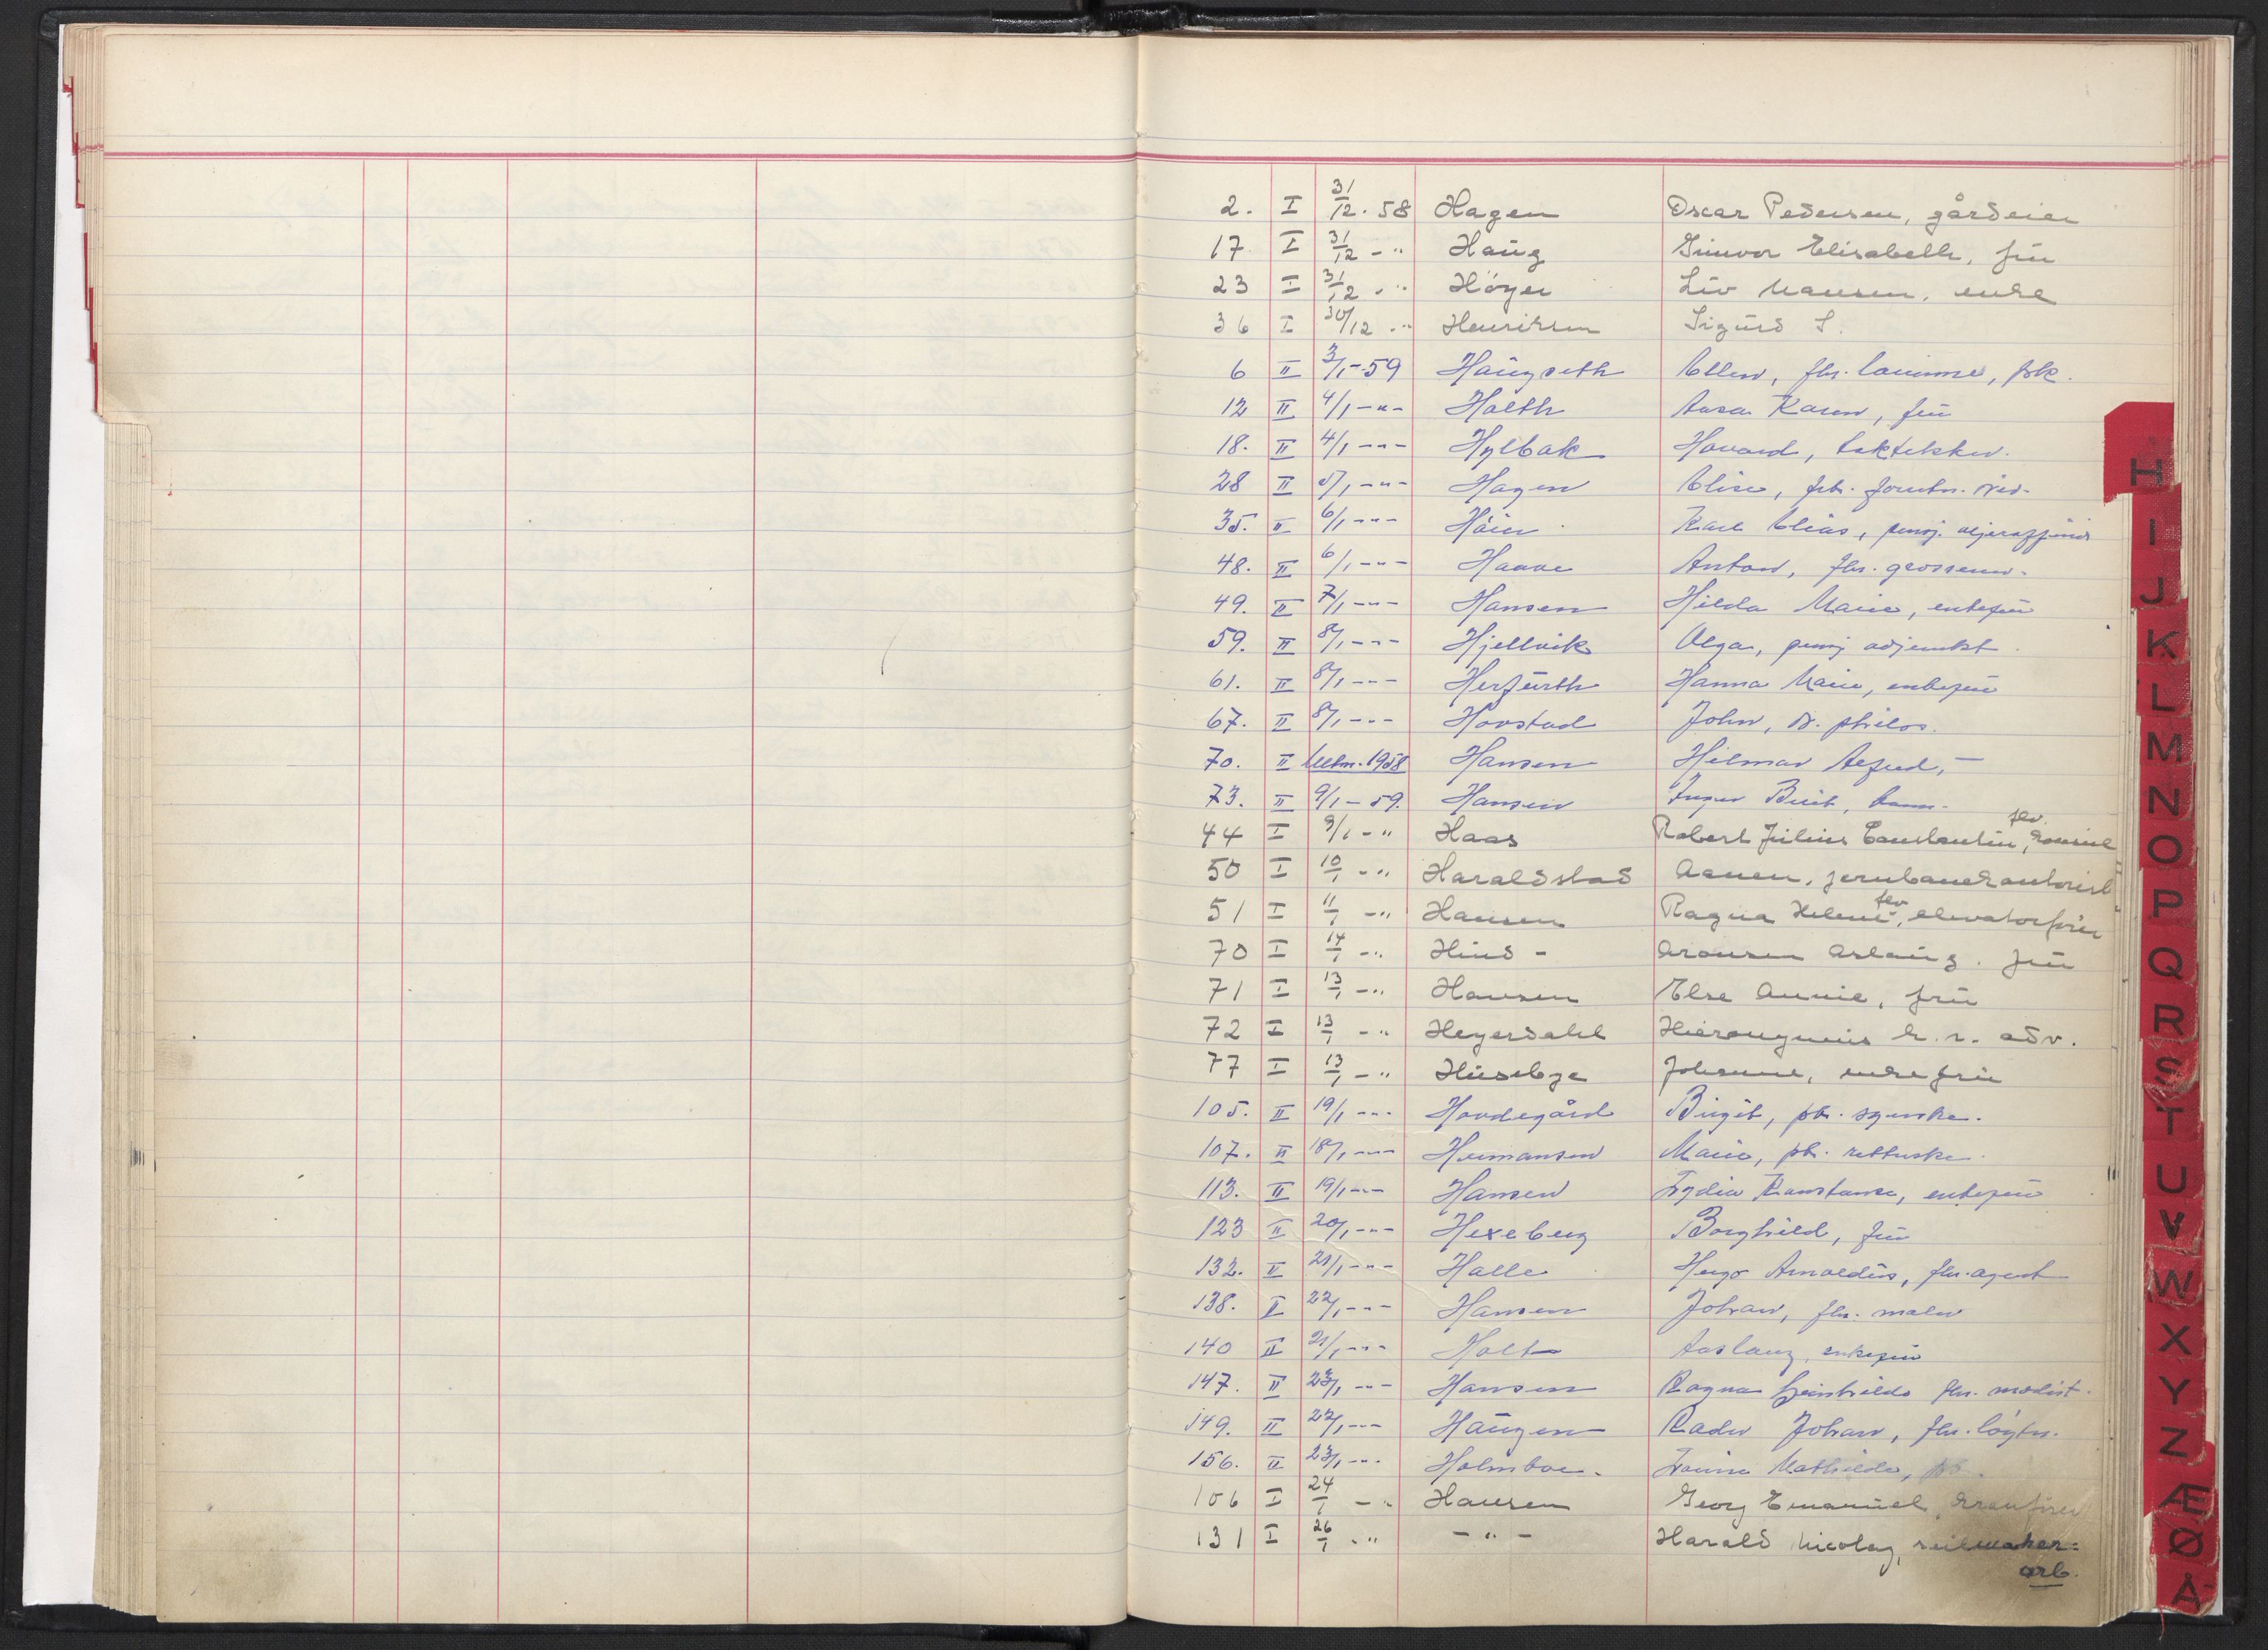 2. I 31/12. 58 Hagen Oscar Pedersen, gårdeier
17 I 31/12 - " Haug Gunvor Elisabeth, frú
23 I 31/12 - " Höyer Liv Mausen, enke
36 I 30/12 - " Henriksen Sigurd S.
6 II 3/1-59 Haugseth Ellen, fhv. , frk.
12 II 4/1 -"- Holth Aasa Karen, frú
18. II 4/1 -"- Hylbak Havard,
28 II 5/1 -"- Hagen Elise, frh.
35. II 6/1 -"- Höien Karl Elias, pensj. oljeraffinør
48. II 6/1 -"- Haave Anton, fhv. grosserer
49. II 7/1 -"- Hansen Hilda Marie, enkefrú
59. II 8/1 -"- Hjellvik Olga, pensj adjunkt
61. II 8/1 -"- Herfurth Hanna Marie, enkefrú
67. II 8/1 -"- Hovstad John, dr. philos.
70. II 1958 Hansen Hilmar Alfred, -
73. II 9/1 - 59. Hansen Inger Berit, barn.
44 I 9/1 - " Haas Robert Julius Constantin, fhv. konsul
50 I 10/1 - " Haraldstad Aanen, jernbanekontorist
51 I 11/1 - " Hansen Ragna Helene, fhv. elevatorfører
70 I 14/1 - " Hind - Aronsen Aslaug. frú
71 I 13/1 - " Hansen Else Annie, frú
72 I 13/1 - " Heyerdahl Hieronymus h. r. adv.
77 I 13/1 - " Huseby Johanne, enkefrú
105. II 19/1 -"- Hovdegård Birgit, ptr. syerske.
107. II 18/1 -"- Hermansen Marie, ptr.
113. II 19/1 -"- Hansen Lydia Konstanse, enkefrú
123 II 20/1 -"- Hexeberg Borghild, frú
132. II 21/1 -"- Halle Hugo Arnoldus, fhv. agent
138. II 22/1 -"- Hansen Johan, fhv. maler
140 II 21/1 -"- Holt Aaslaug, enkefrú
147. II 23/1 -"- Hansen Ragna Gunhilda fhv. modist.
149. II 22/1 -"- Haugen Johan, fhv. løytn.
156. II 23/1 -"- Holmboe. Mathilde,
106 I 24/1 - " Hansen Georg Emanuel, kranfører
131 I 26/1 - " - " - Harald Nicolay, seilmaker=
arb.
H
I
J
K
L
M
N
O
P
Q
R
S
T
U
V
W
X
Y
Z
Æ
Ø
Å